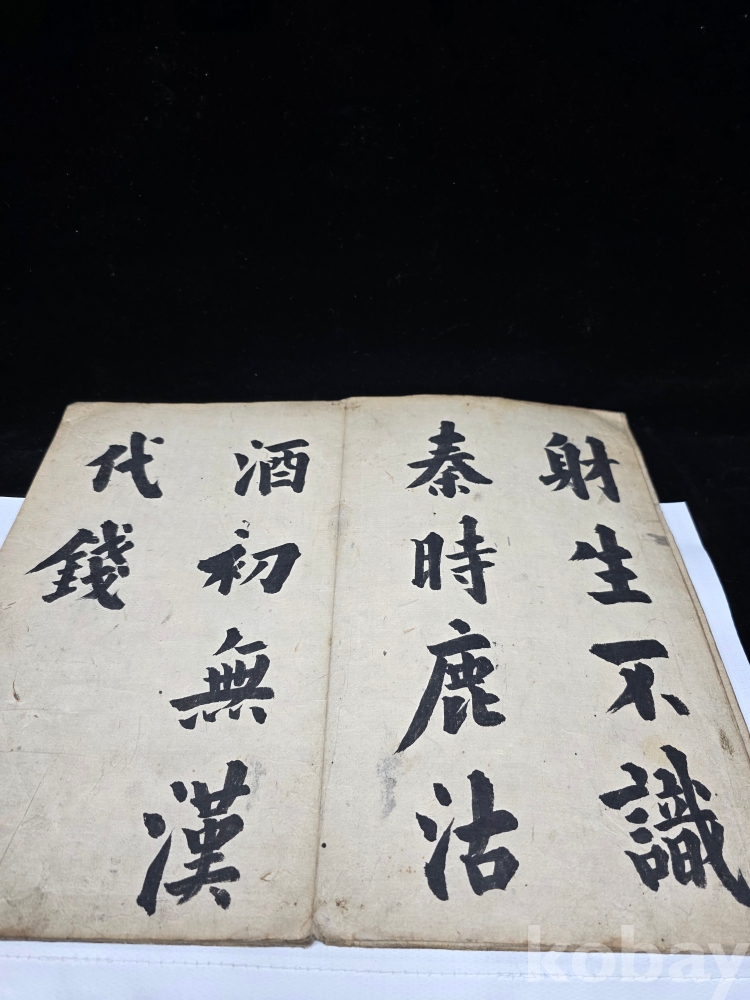 射生不識
秦時鹿沽
酒初無漢
代錢
kobay